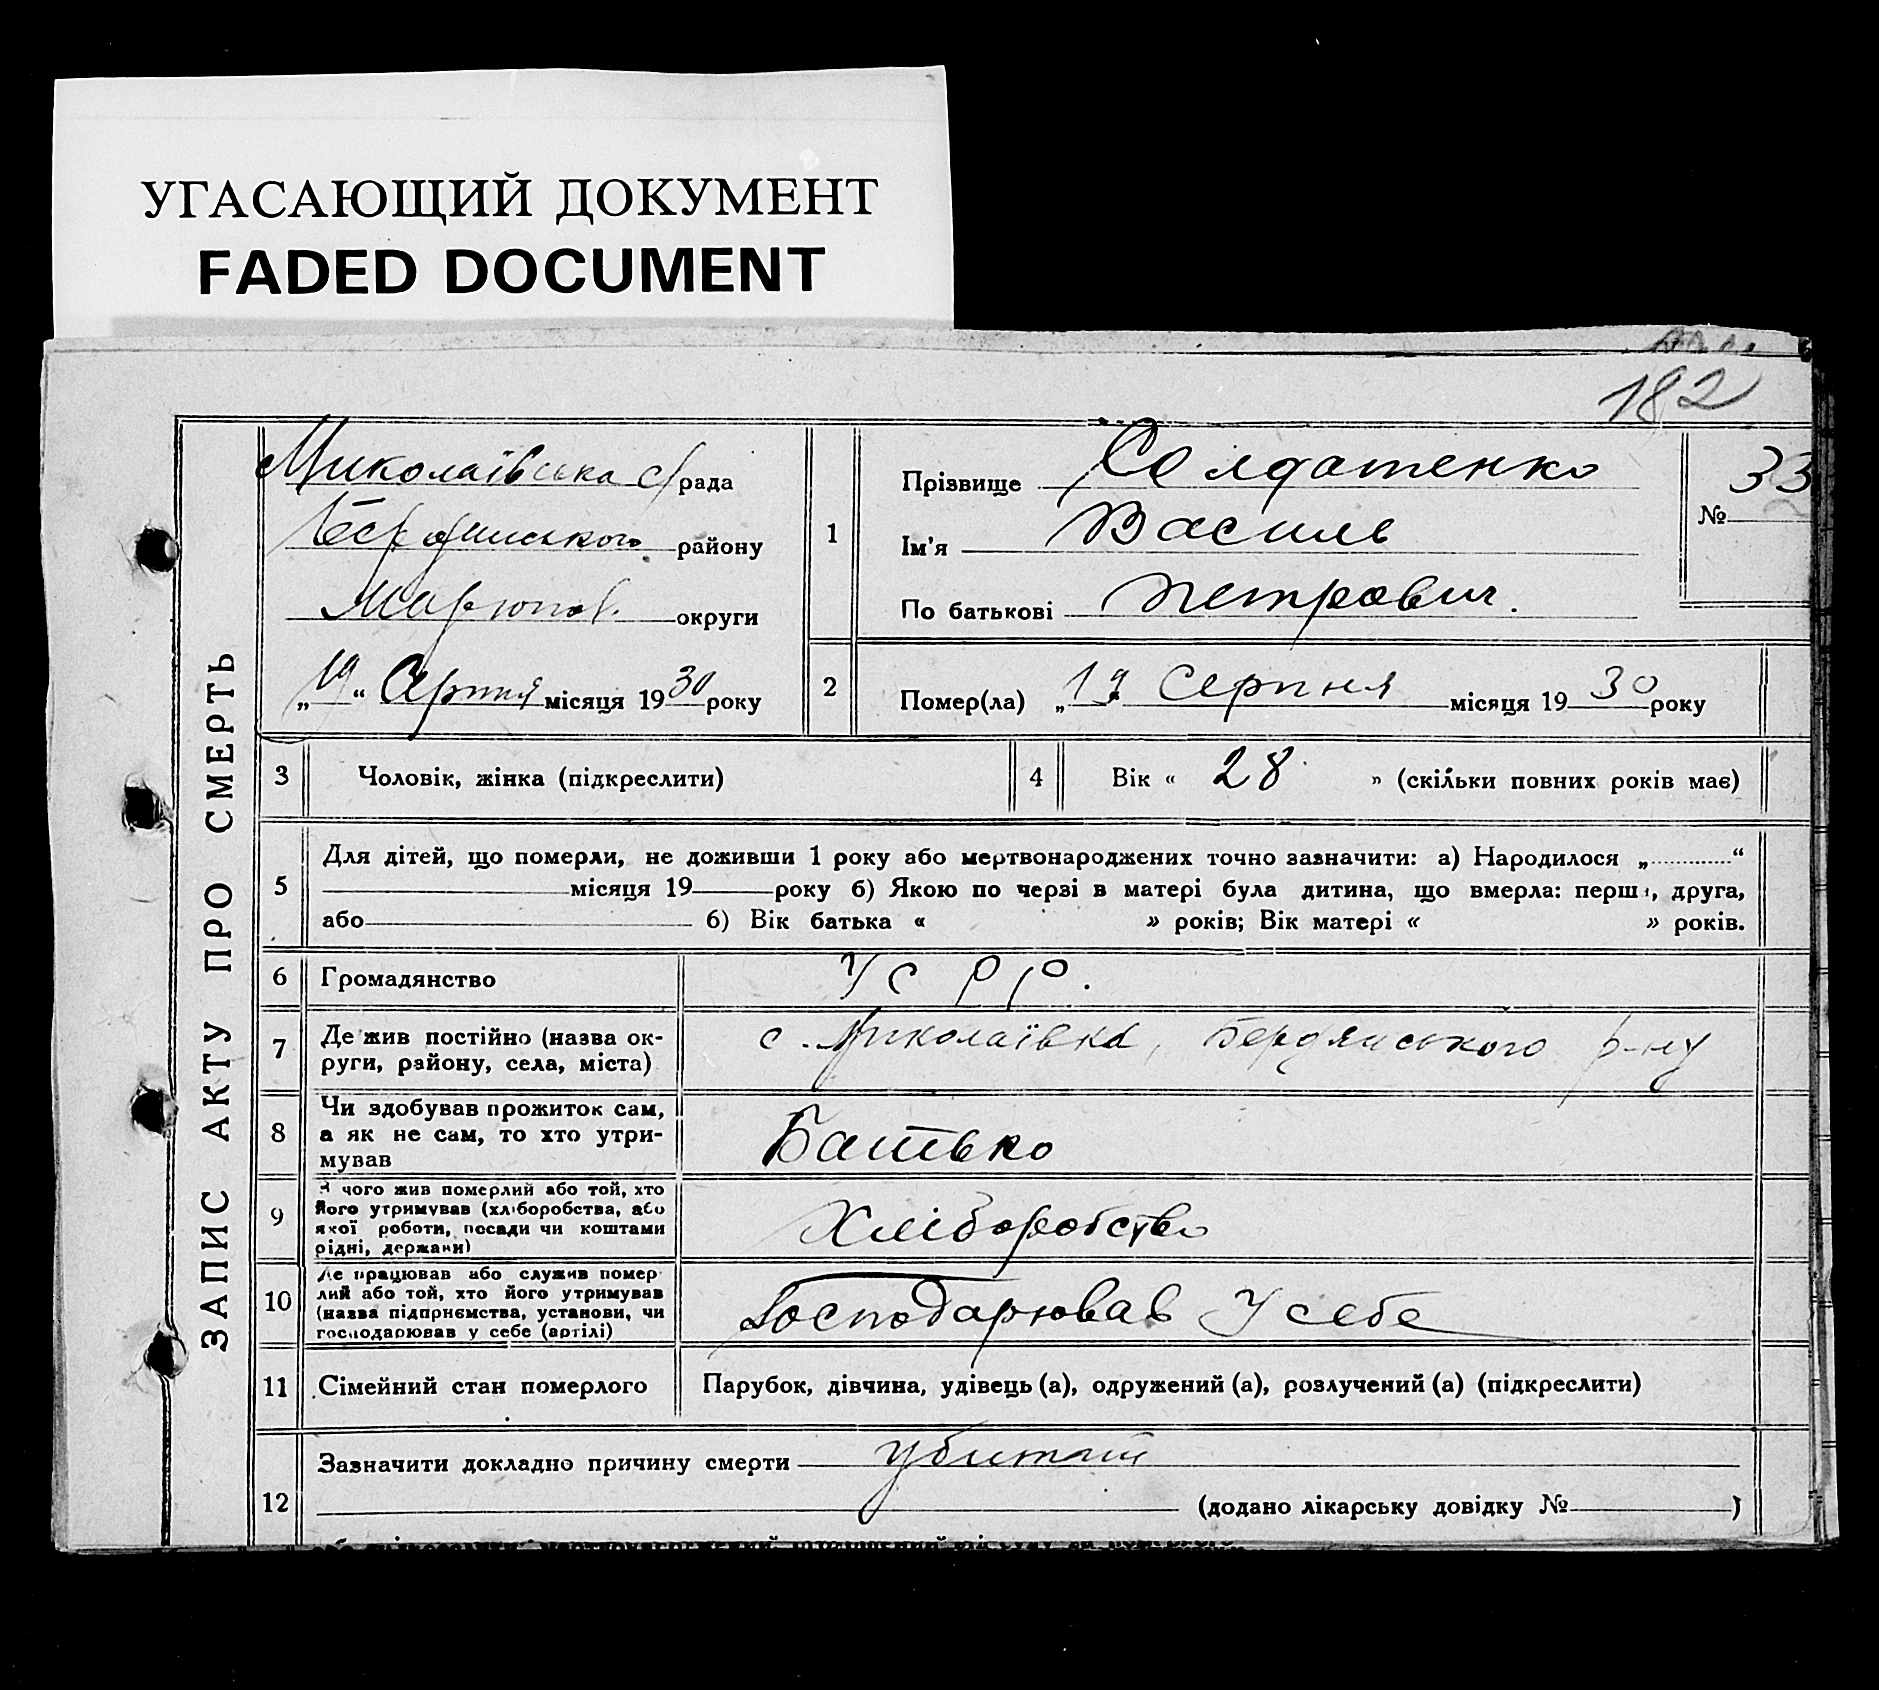 УГАСАЮЩИЙ ДОКУМЕНТ
FADED DOCUMENT
182
ЗАПИС АКТУ ПРО СМЕРТЬ
Миколаївська с/рада
Бердянського району
Маріюпов. округи
„19“ Серпня місяця 1930 року
1
Прізвище Солдатенко
Ім'я Василь
По батькові Петрович.
№ 33
2
Помер(ла) „19“ Серпня місяця 1930 року
3
Чоловік, жінка (підкреслити)
4
Вік « 28 » (скільки повних років має)
5
Для дітей, що померли, не доживши 1 року або мертвонароджених точно зазначити: а) Народилося „ “
місяця 19 року б) Якою по черзі в матері була дитина, що вмерла: перша, друга,
або б) Вік батька « » років; Вік матері « » років.
6
Громадянство
УСРР.
7
Де жив постійно (назва ок-
руги, району, села, міста)
с. Миколаївка, Бердянського р-ну
8
Чи здобував прожиток сам,
а як не сам, то хто утри-
мував
Батько
9
З чого жив померлий або той, хто
його утримував (хліборобства, або
якої роботи, посади чи коштами
рідні, держави)
Хліборобство
10
Де працював або служив помер
лий або той, хто його утримував
(назва підприємства, установи, чи
господарював у себе (артілі)
Господарював У себе
11
Сімейний стан померлого
Парубок, дівчина, удівець (а), одружений (а), розлучений (а) (підкреслити)
12
Зазначити докладно причину смерти убитий
(додано лікарську довідку № )